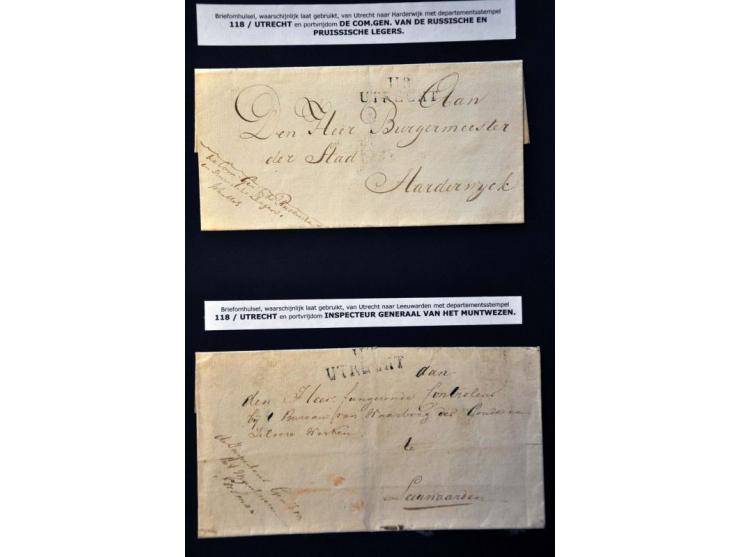 Briefomhulsel, waarschijnlijk laat gebruikt, van Utrecht naar Harderwijk met departementsstempel
118 / UTRECHT en portvrijdom DE COM.GEN. VAN DE RUSSISCHE EN
PRUISSISCHE LEGERS.
118
UTRECHT
Aan
Den Heer Burgermeester
der Stad
Harderwyck
Briefomhulsel, waarschijnlijk laat gebruikt, van Utrecht naar Leeuwarden met departementsstempel
118 / UTRECHT en portvrijdom INSPECTEUR GENERAAL VAN HET MUNTWEZEN.
UTRECHT
aan
den Heer fungerende Controleur
Bureau van Waarborg der Goude en
Zilvere Werken
te
Leeuwaarden